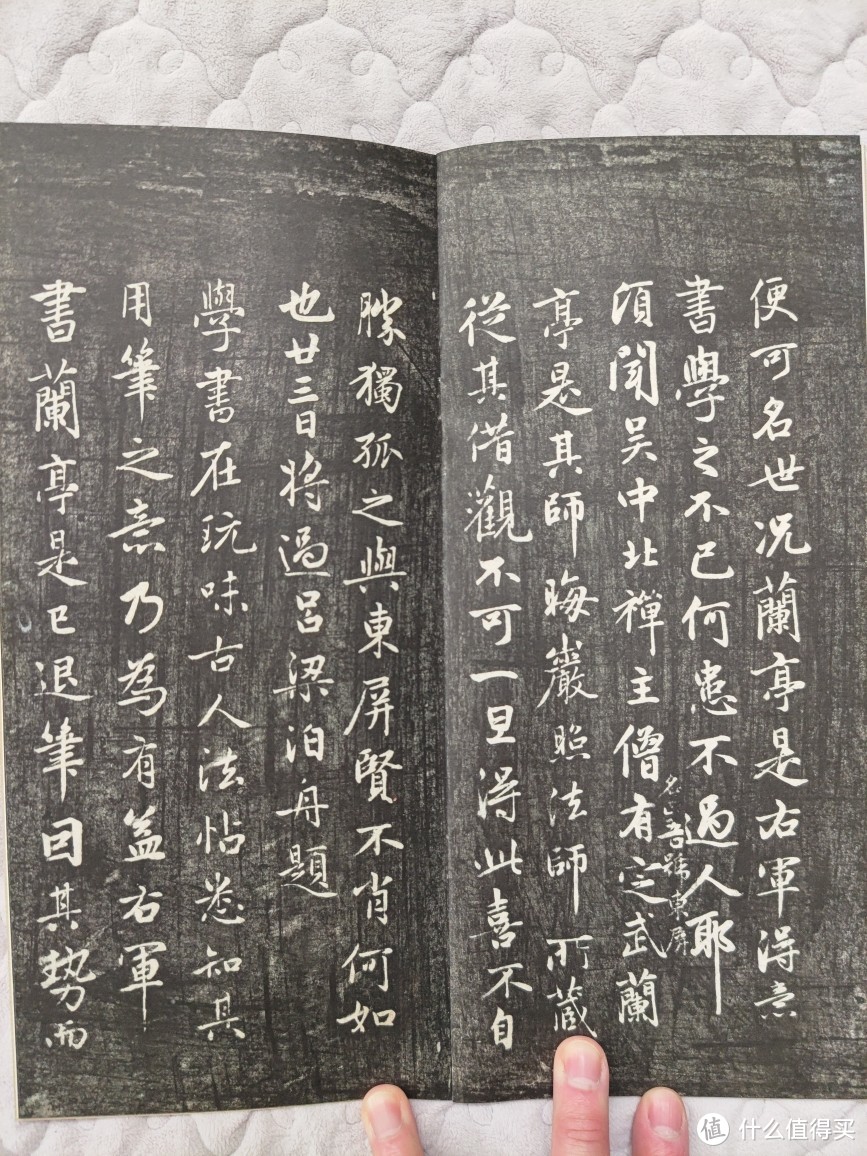 便可名世况蘭亭是右軍得意
書學之不已何患不過人耶
頃聞吴中北禪主僧有定武蘭
名正吾號東屏
亭是其師晦巖照法師所藏
從其借觀不可一旦得此喜不自
勝獨孤之與東屏賢不肖何如
也廿三日將過吕梁泊舟題
學書在玩味古人法帖悉知其
用筆之意乃為有益右軍
書蘭亭是已退筆因其勢而
值 什么值得买